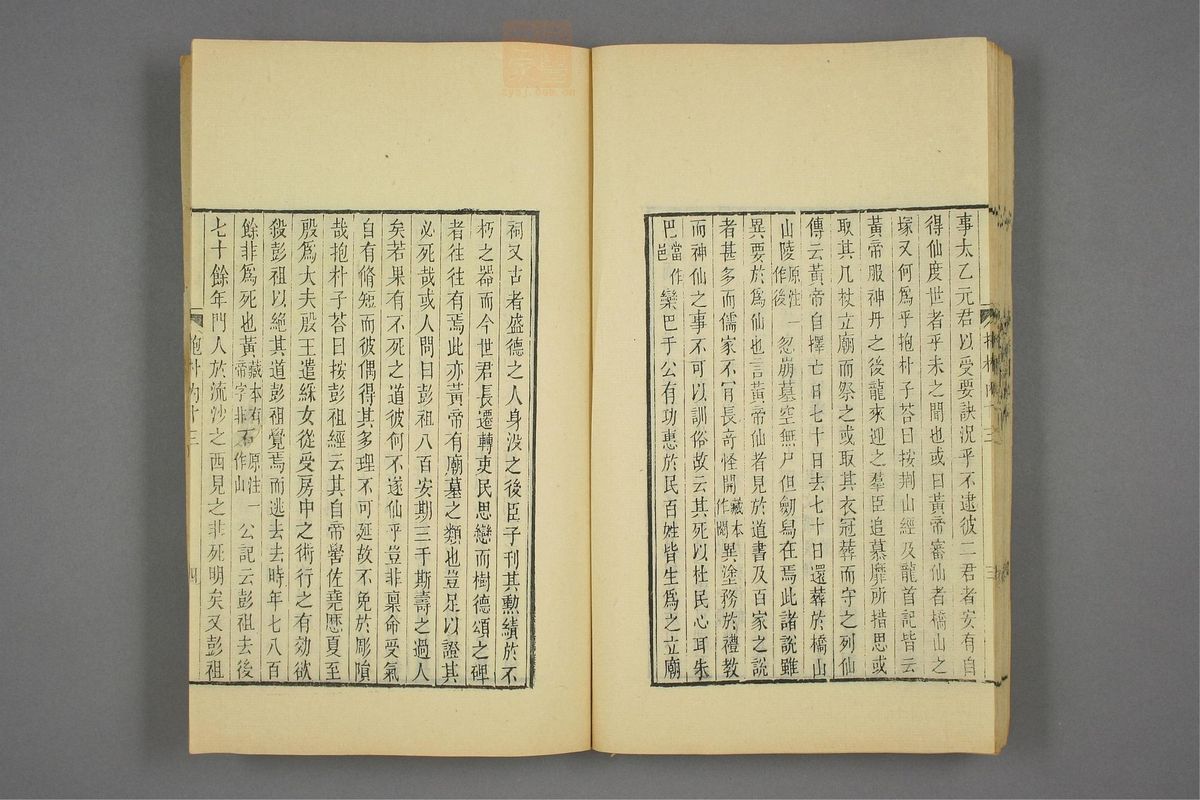 事太乙元君以受要訣況乎不逮彼二君者安有自
得仙度世者乎未之聞也或曰黃帝審仙者橋山之
塚又何爲乎抱朴子荅曰按荆山經及龍首記皆云
黃帝服神丹之後龍來迎之羣臣追慕靡所措思或
取其几杖立廟而祭之或取其衣冠葬而守之列仙
傳云黃帝自擇亡日七十日去七十日還葬於橋山
山陵原注一作後忽崩墓空無尸但劒舄在焉此諸說雖
異要於爲仙也言黃帝仙者見於道書及百家之說
者甚多而儒家不肎長奇怪開藏本作閡異塗務於禮教
而神仙之事不可以訓俗故云其死以杜民心耳朱
巴當作邑欒巴于公有功惠於民百姓皆生爲之立廟
三
祠又古者盛德之人身没之後臣子刊其勲績於不
朽之器而今世君長遷轉吏民思戀而樹德頌之碑
者往往有焉此亦黃帝有廟墓之類也豈足以證其
必死哉或人問曰彭祖八百安期三千斯壽之過人
矣若果有不死之道彼何不遂仙乎豈非稟命受氣
自有脩短而彼偶得其多理不可延故不免於彫隕
哉抱朴子荅曰按彭祖經云其自帝嚳佐堯歷夏至
殷爲大夫殷王遣綵女從受房中之術行之有効欲
殺彭祖以絕其道彭祖覺焉而逃去去時年七八百
餘非爲死也黃藏本有帝字非石原注一作山公記云彭祖去後
七十餘年門人於流沙之西見之非死明矣又彭祖
抱朴内十三
四